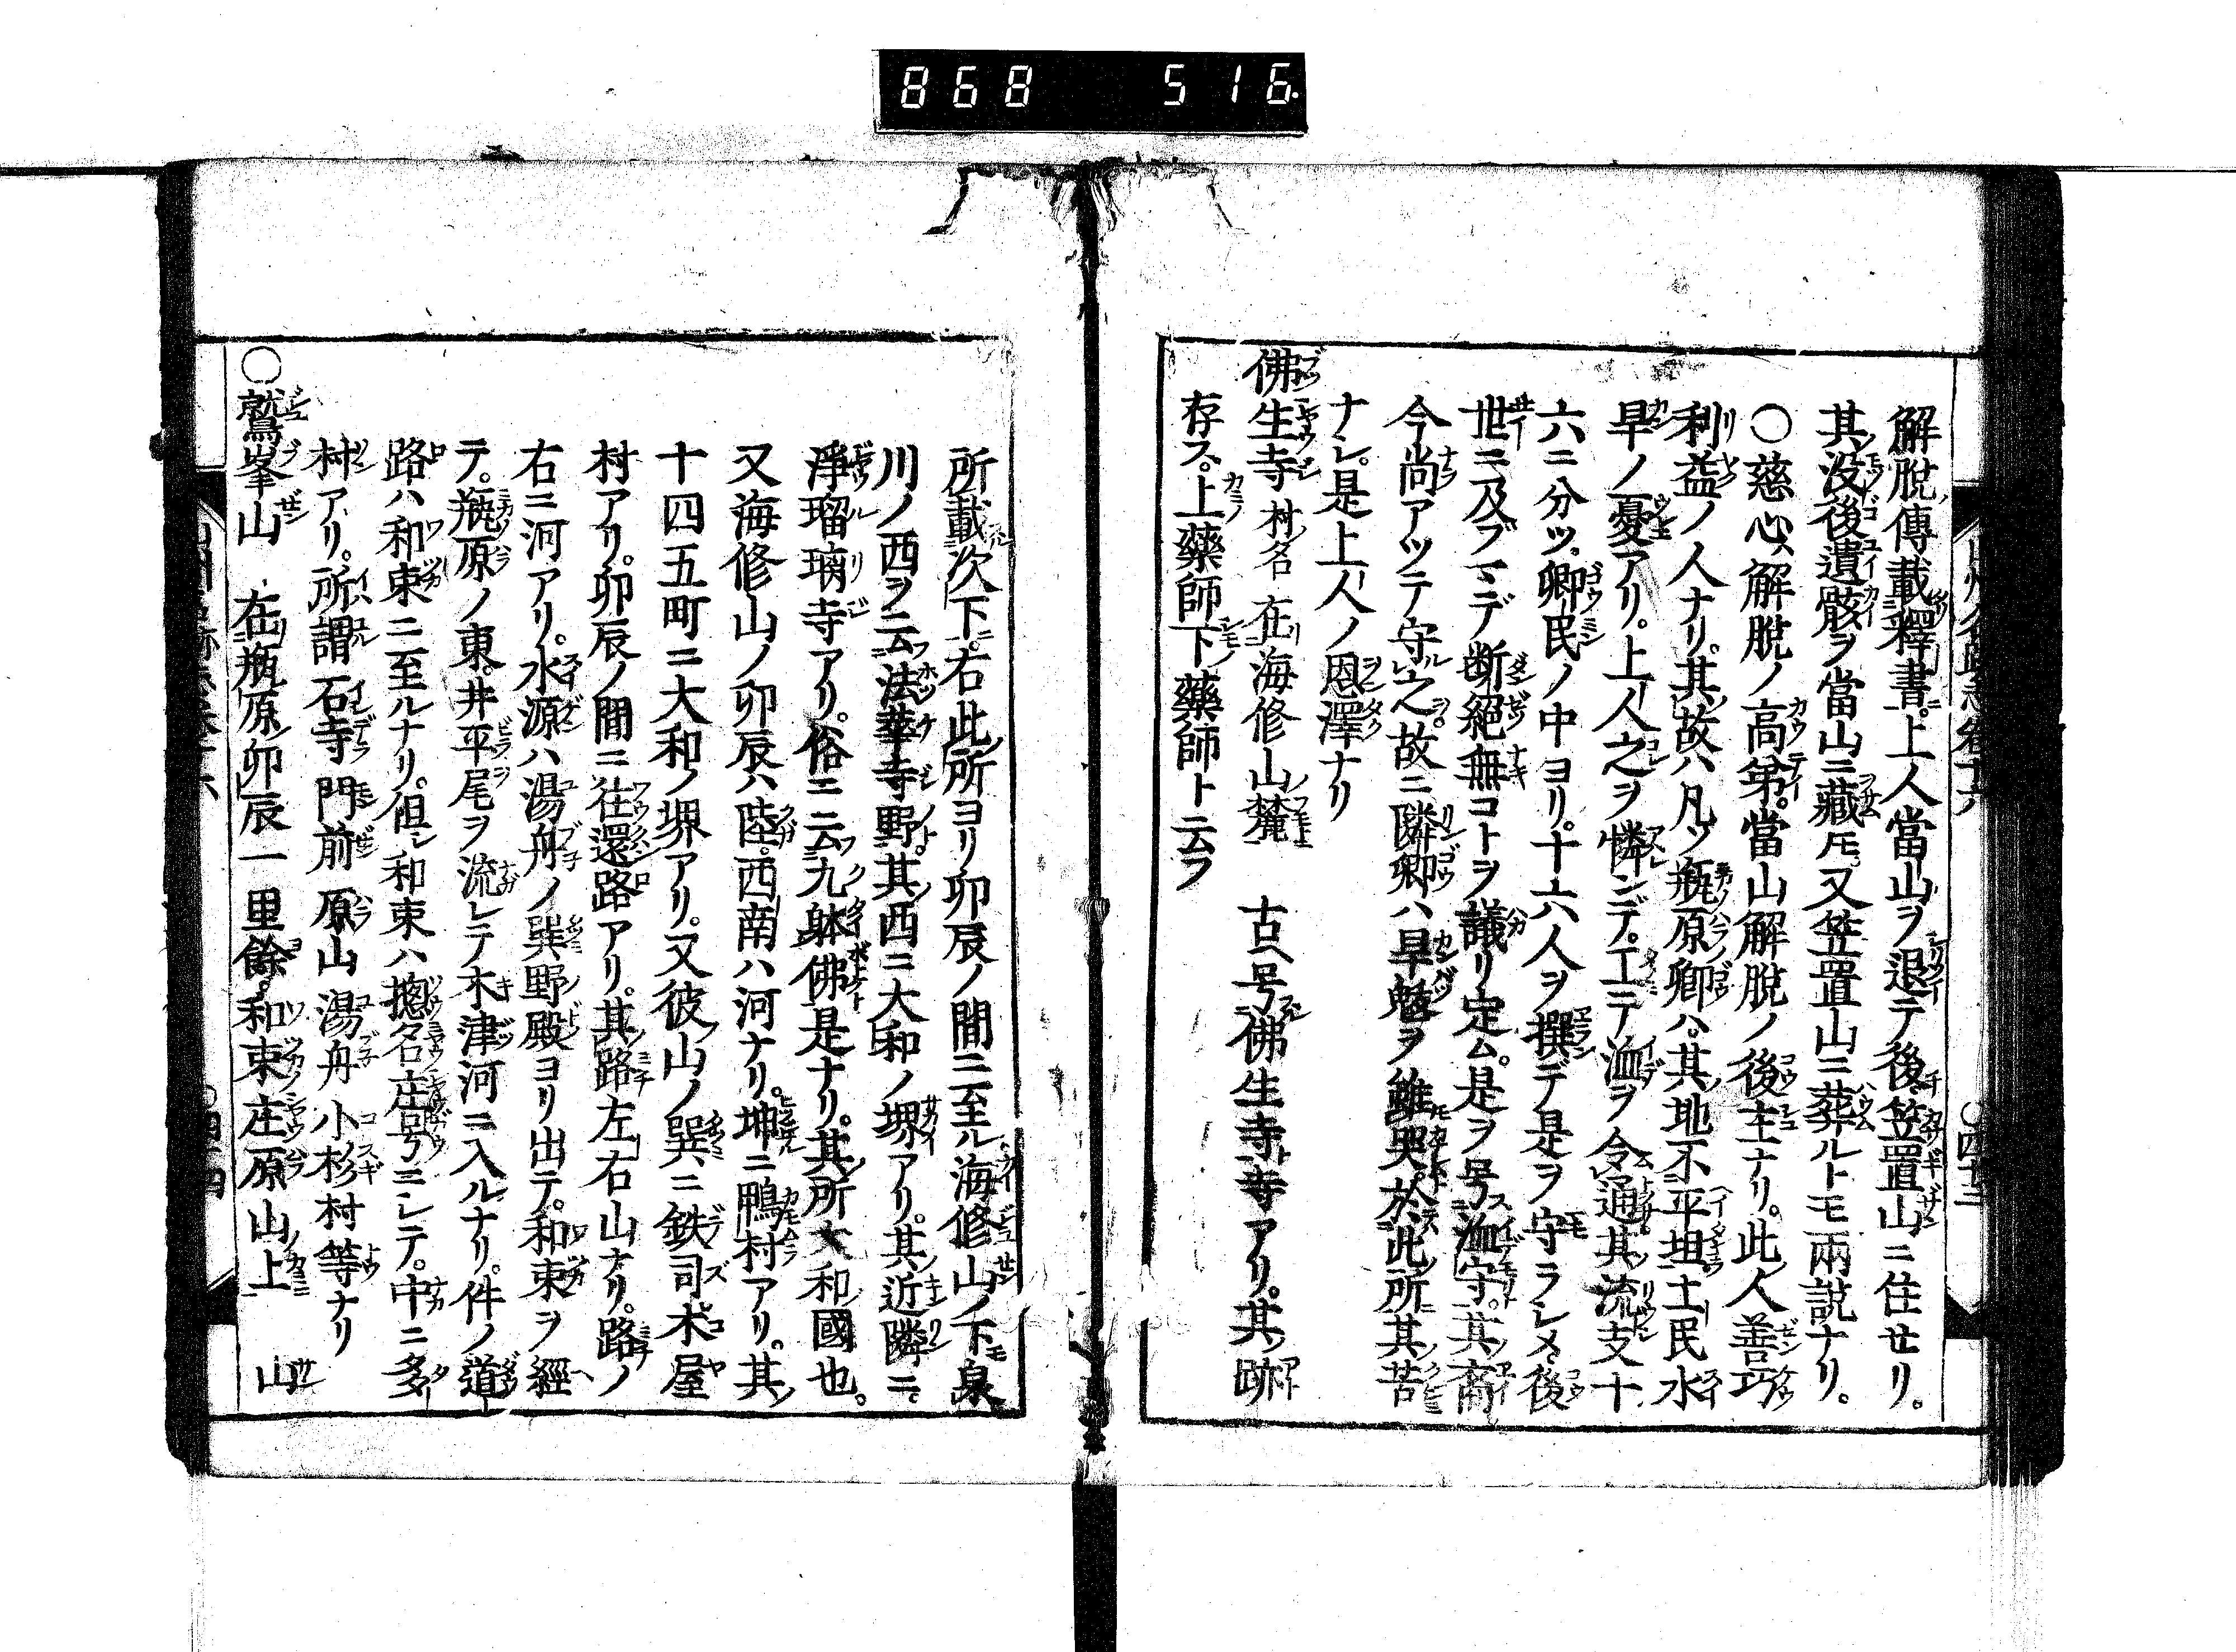 868 516
解脱ノ傳載釋書ニ上人當山ヲ退テ後笠置山ニ住セリ。
其没後遺骸ヲ當山ニ藏ム𪜈又笠置山ニ葬ルトモ兩説ナリ。
〇慈心ハ解脱ノ高弟。當山解脱ノ後主ナリ。此人善巧
利益ノ人ナリ。其故ハ凡ソ瓶原卿ハ其地不平坦土民水
旱ノ憂アリ。上人之ヲ憐ンデ。工テ洫ヲ令通其流支十
六ニ分ツ。卿民ノ中ヨリ。十六人ヲ撰デ是ヲ守ラシメ。後
世ニ及ブマデ断絕無コトヲ議リ定ム。是ヲ号洫守。其裔
今尚アツテ守之故ニ隣卿ハ旱魃ヲ雖哭於此所其苦
ナシ。是上人ノ恩澤ナリ
佛生寺 村名 在海修山麓 古ヘ号佛生寺寺アリ。其跡
存ス。上藥師下藥師ト云フ
所載次下。右此所ヨリ卯辰ノ間ニ至ル海修山ノ下泉
川ノ西ヲ云法華寺野。其西ニ大和ノ堺アリ。其近隣ニ
淨瑠璃寺アリ。俗ニ云九躰佛是ナリ。其所大和國也。
又海修山ノ卯辰ハ陸。西南ハ河ナリ。坤ニ鴨村アリ。其
十四五町ニ大和ノ堺アリ。又彼山ノ巽ニ鉄司木屋
村アリ。卯辰ノ間ニ往還路アリ。其路左右山ナリ。路ノ
右ニ河アリ。水源ハ湯舟ノ巽野殿ヨリ出テ。和束ヲ經
テ。瓶原ノ東。井平尾ヲ流レテ木津河ニ入ルナリ。件ノ道
路ハ和束ニ至ルナリ。但シ和束ハ摠名庄号ニシテ。中ニ多
村アリ。所謂石寺 門前 原山 湯舟 小杉村等ナリ
〇鷲峯山 在瓶原卯辰一里餘。和束庄原山上 山